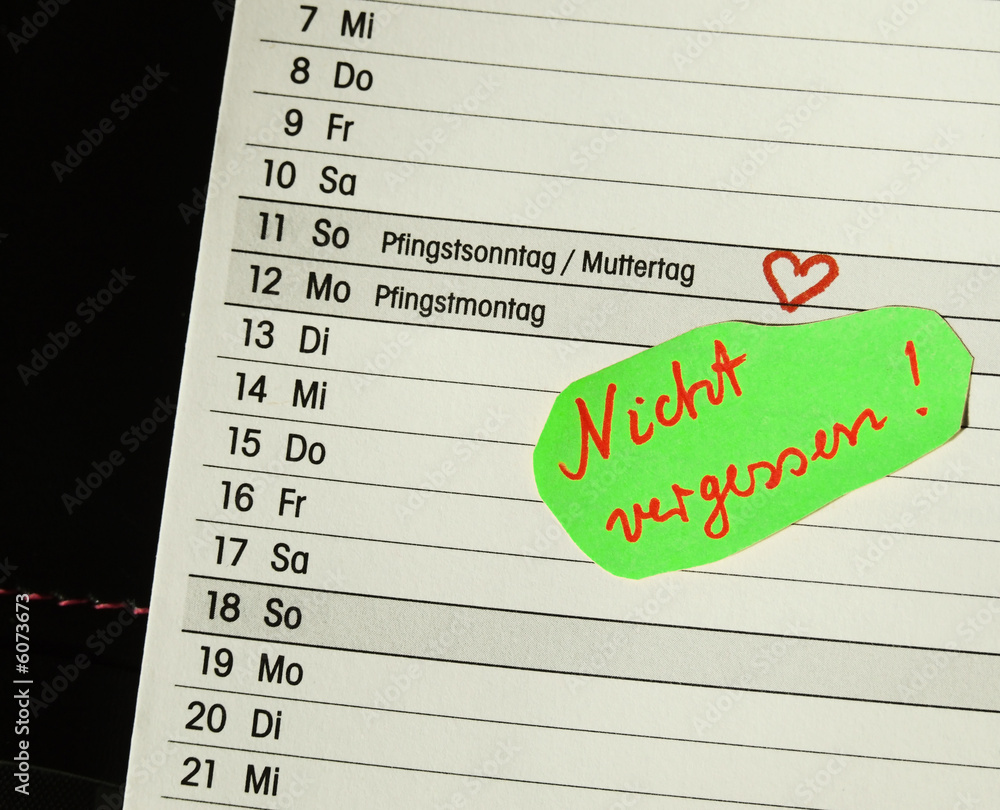 7 Mi
8 Do
9 Fr
10 Sa
11 So Pfingstsonntag / Muttertag
12 Mo Pfingstmontag
13 Di
14 Mi
15 Do
16 Fr
17 Sa
18 So
19 Mo
20 Di
21 Mi
Nicht
vergessen!
Adobe Stock | #6073673